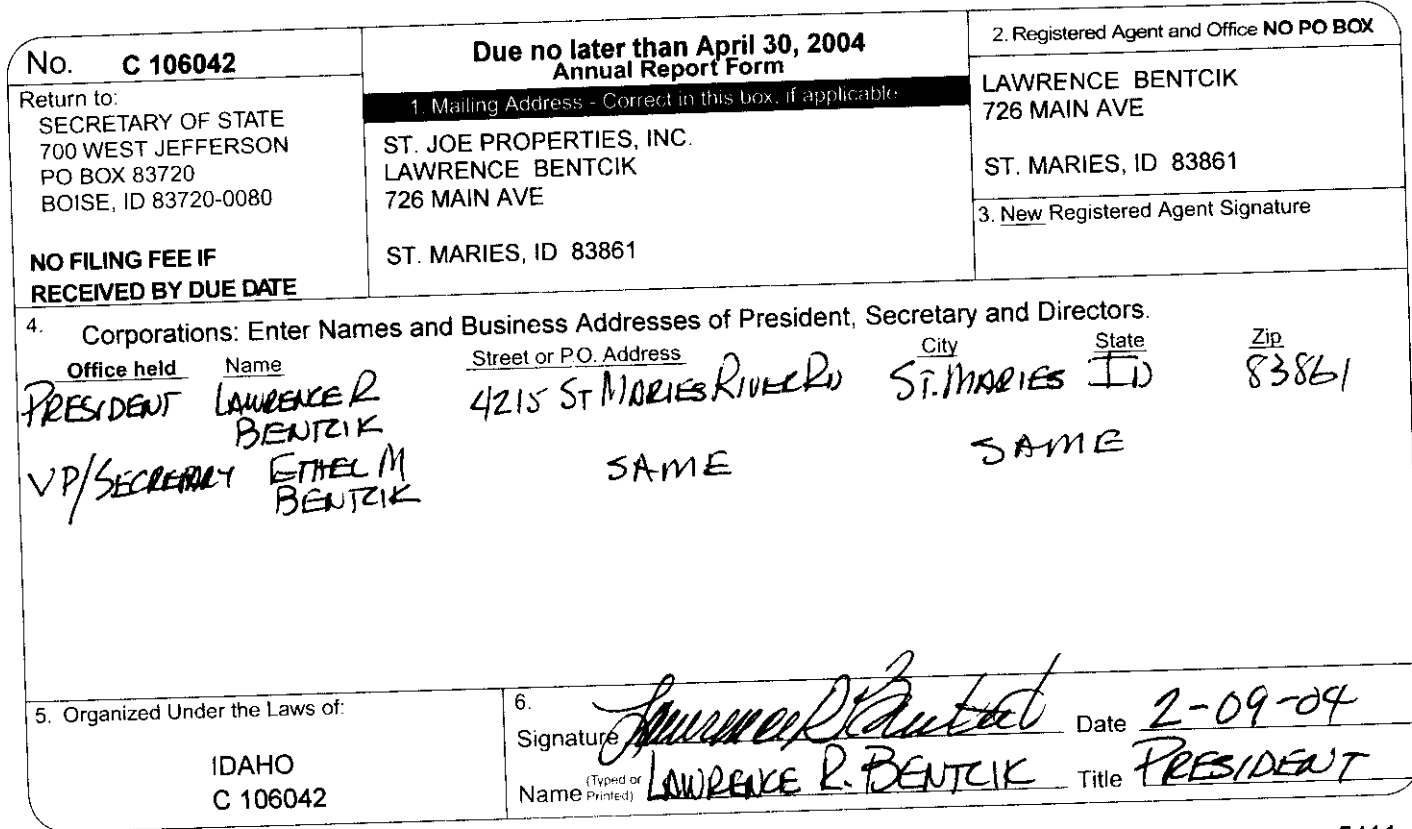 No. C 106042
Return to:
SECRETARY OF STATE
700 WEST JEFFERSON
PO BOX 83720
BOISE, ID 83720-0080
NO FILING FEE IF
RECEIVED BY DUE DATE
Due no later than April 30, 2004
Annual Report Form
1. Mailing Address - Correct in this box, if applicable
ST. JOE PROPERTIES, INC.
LAWRENCE BENTCIK
726 MAIN AVE
ST. MARIES, ID 83861
2. Registered Agent and Office NO PO BOX
LAWRENCE BENTCIK
726 MAIN AVE
ST. MARIES, ID 83861
3. New Registered Agent Signature
4. Corporations: Enter Names and Business Addresses of President, Secretary and Directors.
Office held Name Street or P.O. Address City State Zip
PRESIDENT LAWRENCE R 4215 ST MARIES RIVER RD ST. MARIES ID 83861
BENTCIK
VP/SECRETARY ETHEL M SAME SAME
BENTCIK
5. Organized Under the Laws of:
IDAHO
C 106042
6.
Signature Lawrence R Bentcik Date 2-09-04
Name (Typed or Printed) LAWRENCE R. BENTCIK Title PRESIDENT